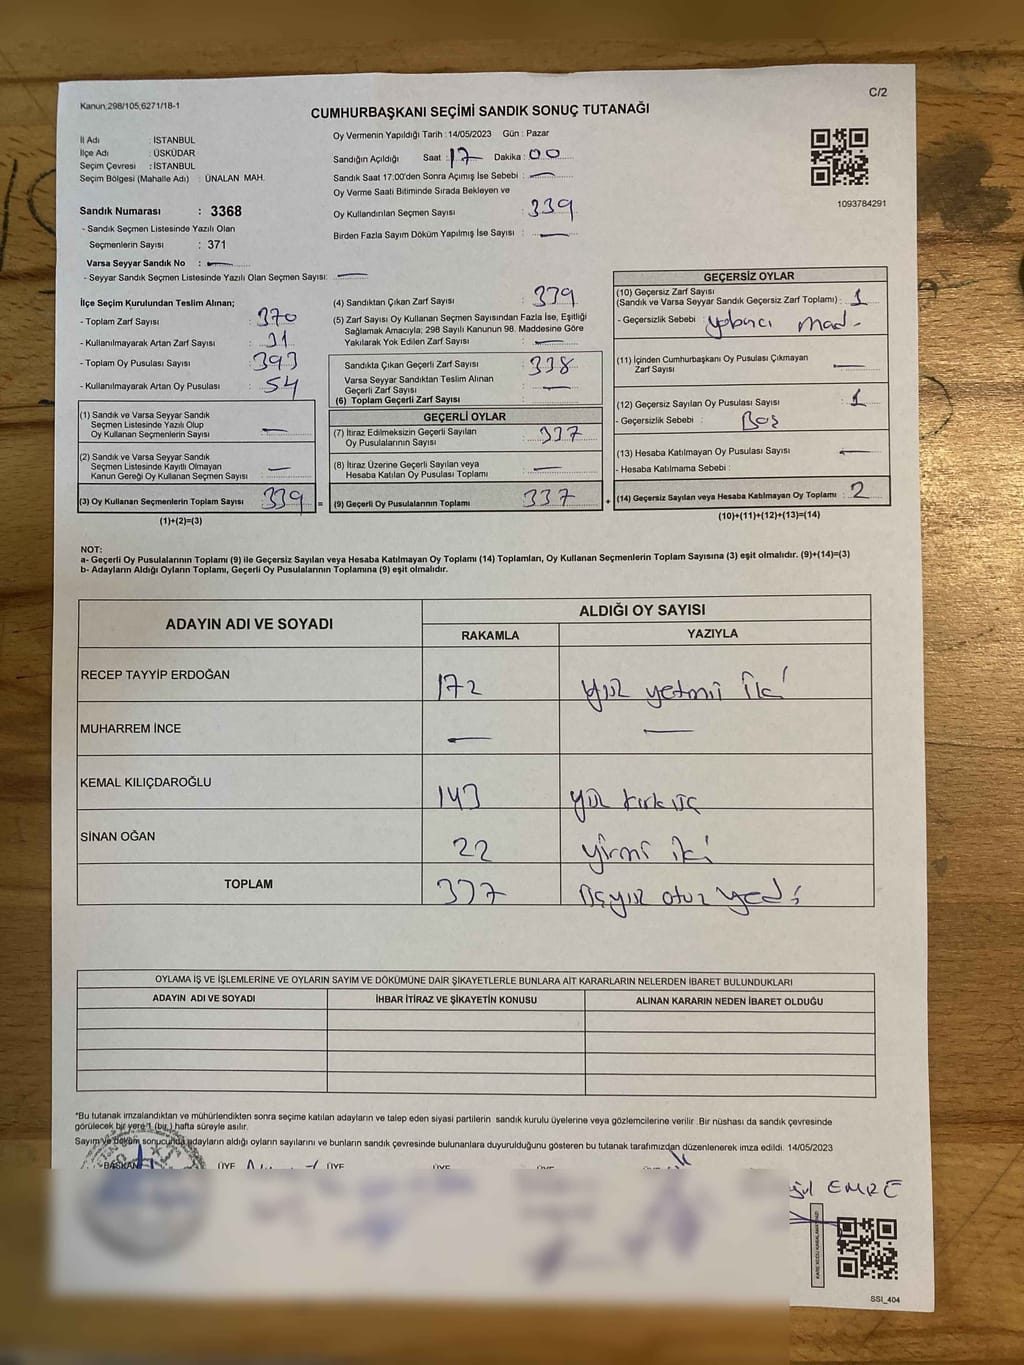 Kanun,298/105,6271/18-1
C/2
CUMHURBAŞKANI SEÇİMİ SANDIK SONUÇ TUTANAĞI
İl Adı : İSTANBUL
İlçe Adı : ÜSKÜDAR
Seçim Çevresi : İSTANBUL
Seçim Bölgesi (Mahalle Adı) : ÜNALAN MAH.
Sandık Numarası : 3368
- Sandık Seçmen Listesinde Yazılı Olan
Seçmenlerin Sayısı : 371
Varsa Seyyar Sandık No : —
- Seyyar Sandık Seçmen Listesinde Yazılı Olan Seçmen Sayısı: —
Oy Vermenin Yapıldığı Tarih : 14/05/2023 Gün : Pazar
Sandığın Açıldığı Saat : 17 Dakika : 00
Sandık Saat 17:00'den Sonra Açımış İse Sebebi : —
Oy Verme Saati Bitiminde Sırada Bekleyen ve
Oy Kullandırılan Seçmen Sayısı : 339
Birden Fazla Sayım Döküm Yapılmış İse Sayısı : —
1093784291
İlçe Seçim Kurulundan Teslim Alınan;
- Toplam Zarf Sayısı : 370
- Kullanılmayarak Artan Zarf Sayısı : 31
- Toplam Oy Pusulası Sayısı : 393
- Kullanılmayarak Artan Oy Pusulası : 54
(1) Sandık ve Varsa Seyyar Sandık
Seçmen Listesinde Yazılı Olup
Oy Kullanan Seçmenlerin Sayısı : —
(2) Sandık ve Varsa Seyyar Sandık
Seçmen Listesinde Kayıtlı Olmayan
Kanun Gereği Oy Kullanan Seçmen Sayısı : —
(3) Oy Kullanan Seçmenlerin Toplam Sayısı : 339 =
(1)+(2)=(3)
(4) Sandıktan Çıkan Zarf Sayısı : 339
(5) Zarf Sayısı Oy Kullanan Seçmen Sayısından Fazla İse, Eşitliği
Sağlamak Amacıyla; 298 Sayılı Kanunun 98. Maddesine Göre
Yakılarak Yok Edilen Zarf Sayısı : —
Sandıkta Çıkan Geçerli Zarf Sayısı : 338
Varsa Seyyar Sandıktan Teslim Alınan
Geçerli Zarf Sayısı : —
(6) Toplam Geçerli Zarf Sayısı :
GEÇERLİ OYLAR
(7) İtiraz Edilmeksizin Geçerli Sayılan
Oy Pusulalarının Sayısı : 337
(8) İtiraz Üzerine Geçerli Sayılan veya
Hesaba Katılan Oy Pusulası Toplamı : —
(9) Geçerli Oy Pusulalarının Toplamı : 337 +
GEÇERSİZ OYLAR
(10) Geçersiz Zarf Sayısı
(Sandık ve Varsa Seyyar Sandık Geçersiz Zarf Toplamı) : 1
- Geçersizlik Sebebi : yabancı mad.
(11) İçinden Cumhurbaşkanı Oy Pusulası Çıkmayan
Zarf Sayısı : —
(12) Geçersiz Sayılan Oy Pusulası Sayısı : 1
- Geçersizlik Sebebi : Boş
(13) Hesaba Katılmayan Oy Pusulası Sayısı : —
- Hesaba Katılmama Sebebi :
(14) Geçersiz Sayılan veya Hesaba Katılmayan Oy Toplamı : 2
(10)+(11)+(12)+(13)=(14)
NOT:
a- Geçerli Oy Pusulalarının Toplamı (9) ile Geçersiz Sayılan veya Hesaba Katılmayan Oy Toplamı (14) Toplamları, Oy Kullanan Seçmenlerin Toplam Sayısına (3) eşit olmalıdır. (9)+(14)=(3)
b- Adayların Aldığı Oyların Toplamı, Geçerli Oy Pusulalarının Toplamına (9) eşit olmalıdır.
ADAYIN ADI VE SOYADI
ALDIĞI OY SAYISI
RAKAMLA YAZIYLA
RECEP TAYYİP ERDOĞAN 172 yüz yetmiş iki
MUHARREM İNCE — —
KEMAL KILIÇDAROĞLU 143 yüz kırk üç
SİNAN OĞAN 22 yirmi iki
TOPLAM 337 üçyüz otuz yedi
OYLAMA İŞ VE İŞLEMLERİNE VE OYLARIN SAYIM VE DÖKÜMÜNE DAİR ŞİKAYETLERLE BUNLARA AİT KARARLARIN NELERDEN İBARET BULUNDUKLARI
ADAYIN ADI VE SOYADI İHBAR İTİRAZ VE ŞİKAYETİN KONUSU ALINAN KARARIN NEDEN İBARET OLDUĞU
"Bu tutanak imzalandıktan ve mühürlendikten sonra seçime katılan adayların ve talep eden siyasi partilerin sandık kurulu üyelerine veya gözlemcilerine verilir. Bir nüshası da sandık çevresinde
görülecek bir yere 1 (bir) hafta süreyle asılır.
Sayım ve döküm sonucunda adayların aldığı oyların sayılarını ve bunların sandık çevresinde bulunanlara duyurulduğunu gösteren bu tutanak tarafımızdan düzenlenerek imza edildi. 14/05/2023
BAŞKAN ÜYE ÜYE ÜYE ÜYE
EMRE
SSI_404